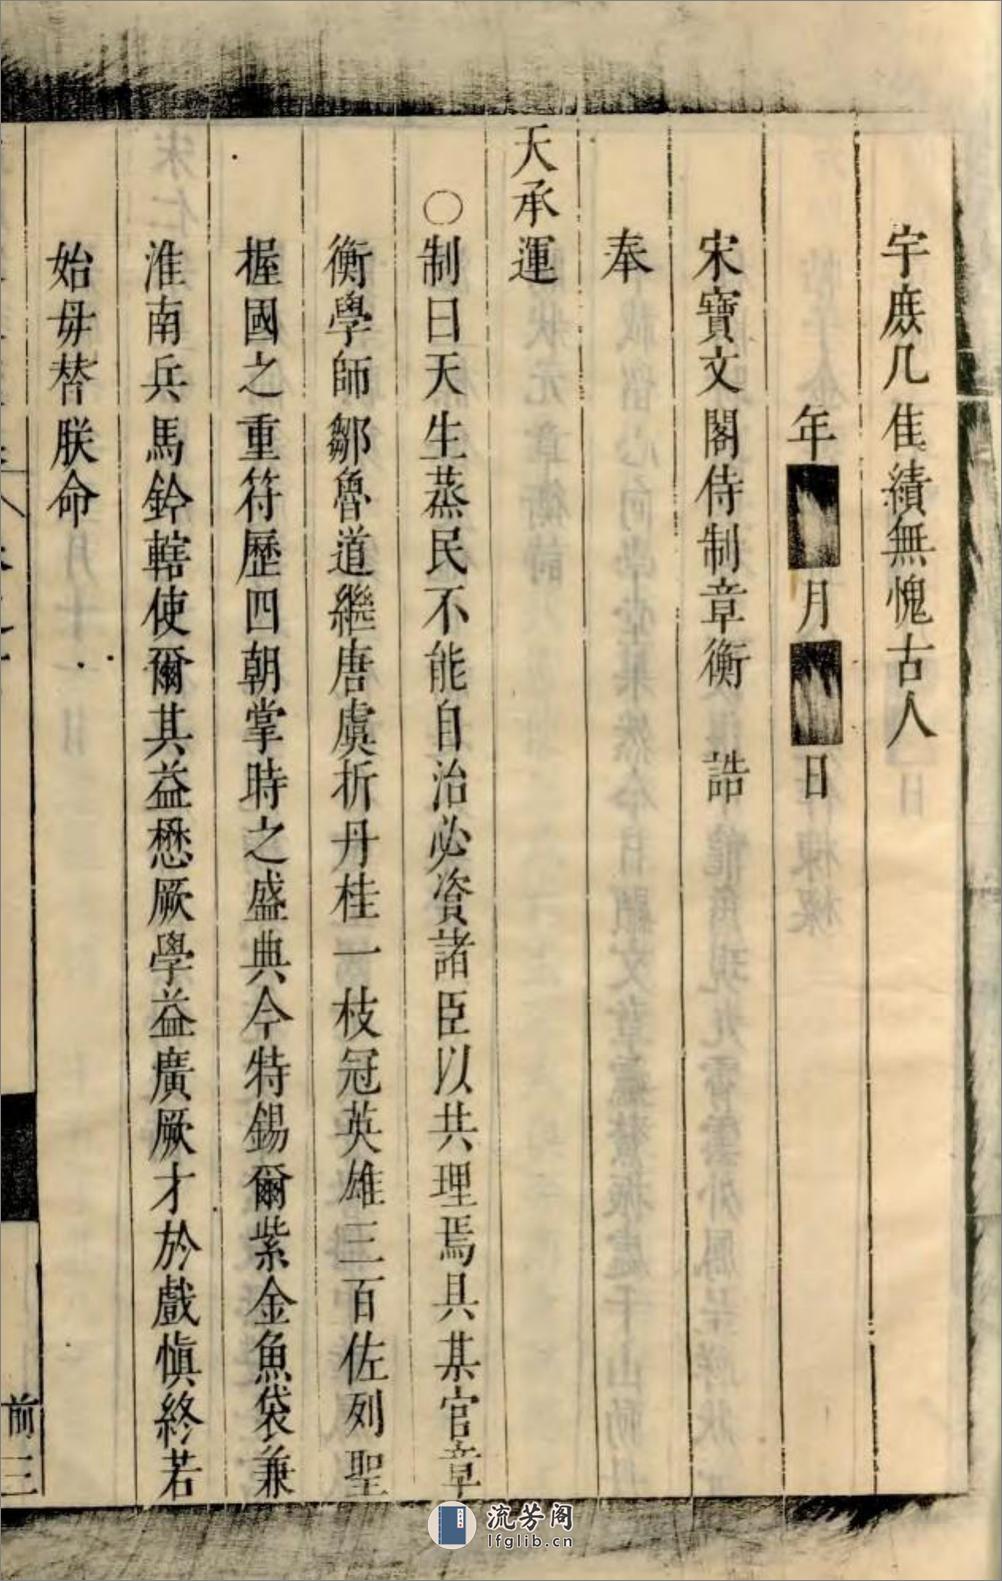 宇庶几佳績無愧古人
年 月 日
宋寶文閣侍制章衡 誥
奉
天承運
○制曰天生蒸民不能自治必資諸臣以共理焉具某官章
衡學師鄒魯道繼唐虞折丹桂一枝冠英雄三百佐列聖
握國之重符歷四朝掌時之盛典今特錫爾紫金魚袋兼
淮南兵馬鈐轄使爾其益懋厥學益廣厥才於戲慎終若
始毋替朕命
前三
流芳阁
lfglib.cn